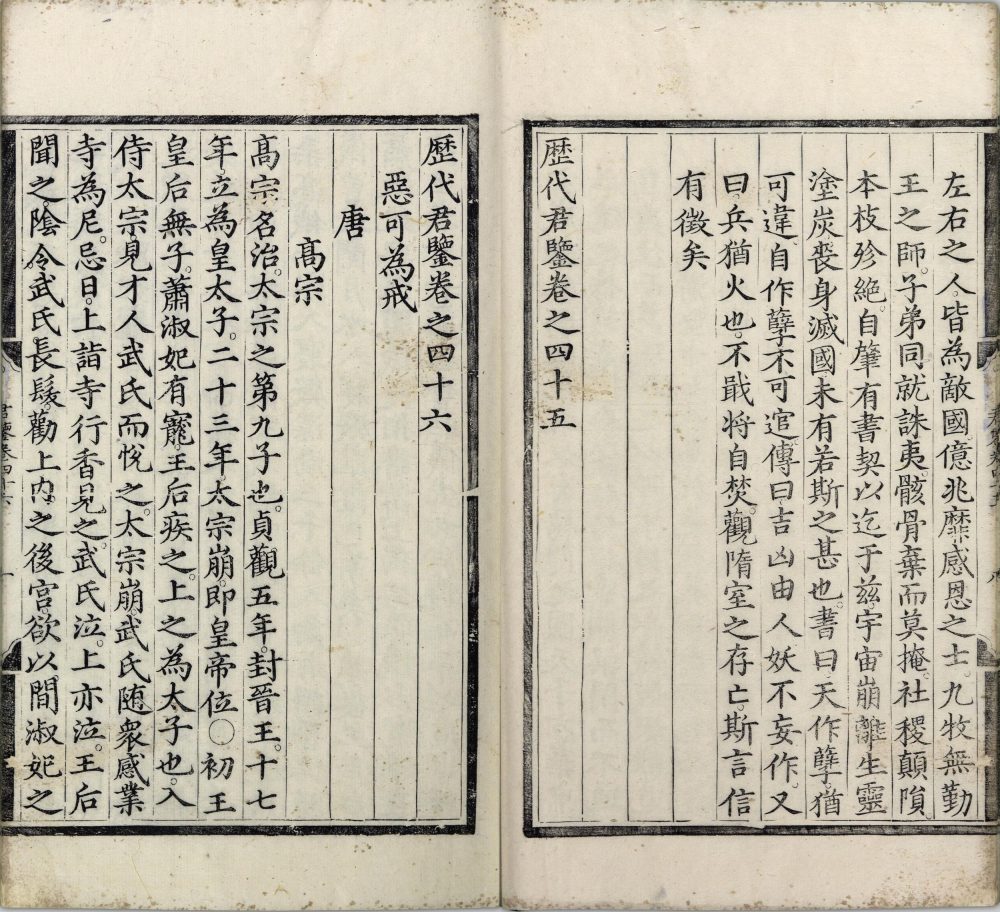 左右之人。皆為敵國。億兆靡感恩之士。九牧無勤
王之師。子弟同就誅夷。骸骨棄而莫掩。社稷顛隕。
本枝殄絕。自肇有書契以迄于茲。宇宙崩離。生靈
塗炭。喪身滅國。未有若斯之甚也。書曰。天作孽猶
可違。自作孽不可逭。傳曰。吉凶由人。妖不妄作。又
曰。兵猶火也。不戢將自焚。觀隋室之存亡。斯言信
有徵矣
歷代君鑒卷之四十五
歷代君鑒卷之四十六
惡可為戒
唐
高宗
高宗。名治。太宗之第九子也。貞觀五年。封晉王。十七
年立為皇太子。二十三年。太宗崩。即皇帝位〇初王
皇后無子。蕭淑妃有寵。王后疾之。上之為太子也。入
侍太宗。見才人武氏而悅之。太宗崩。武氏随衆感業
寺為尼。忌日。上詣寺行香見之。武氏泣。上亦泣。王后
聞之。陰令武氏長髮。勸上内之後宮。欲以間淑妃之
君鑒卷四十六